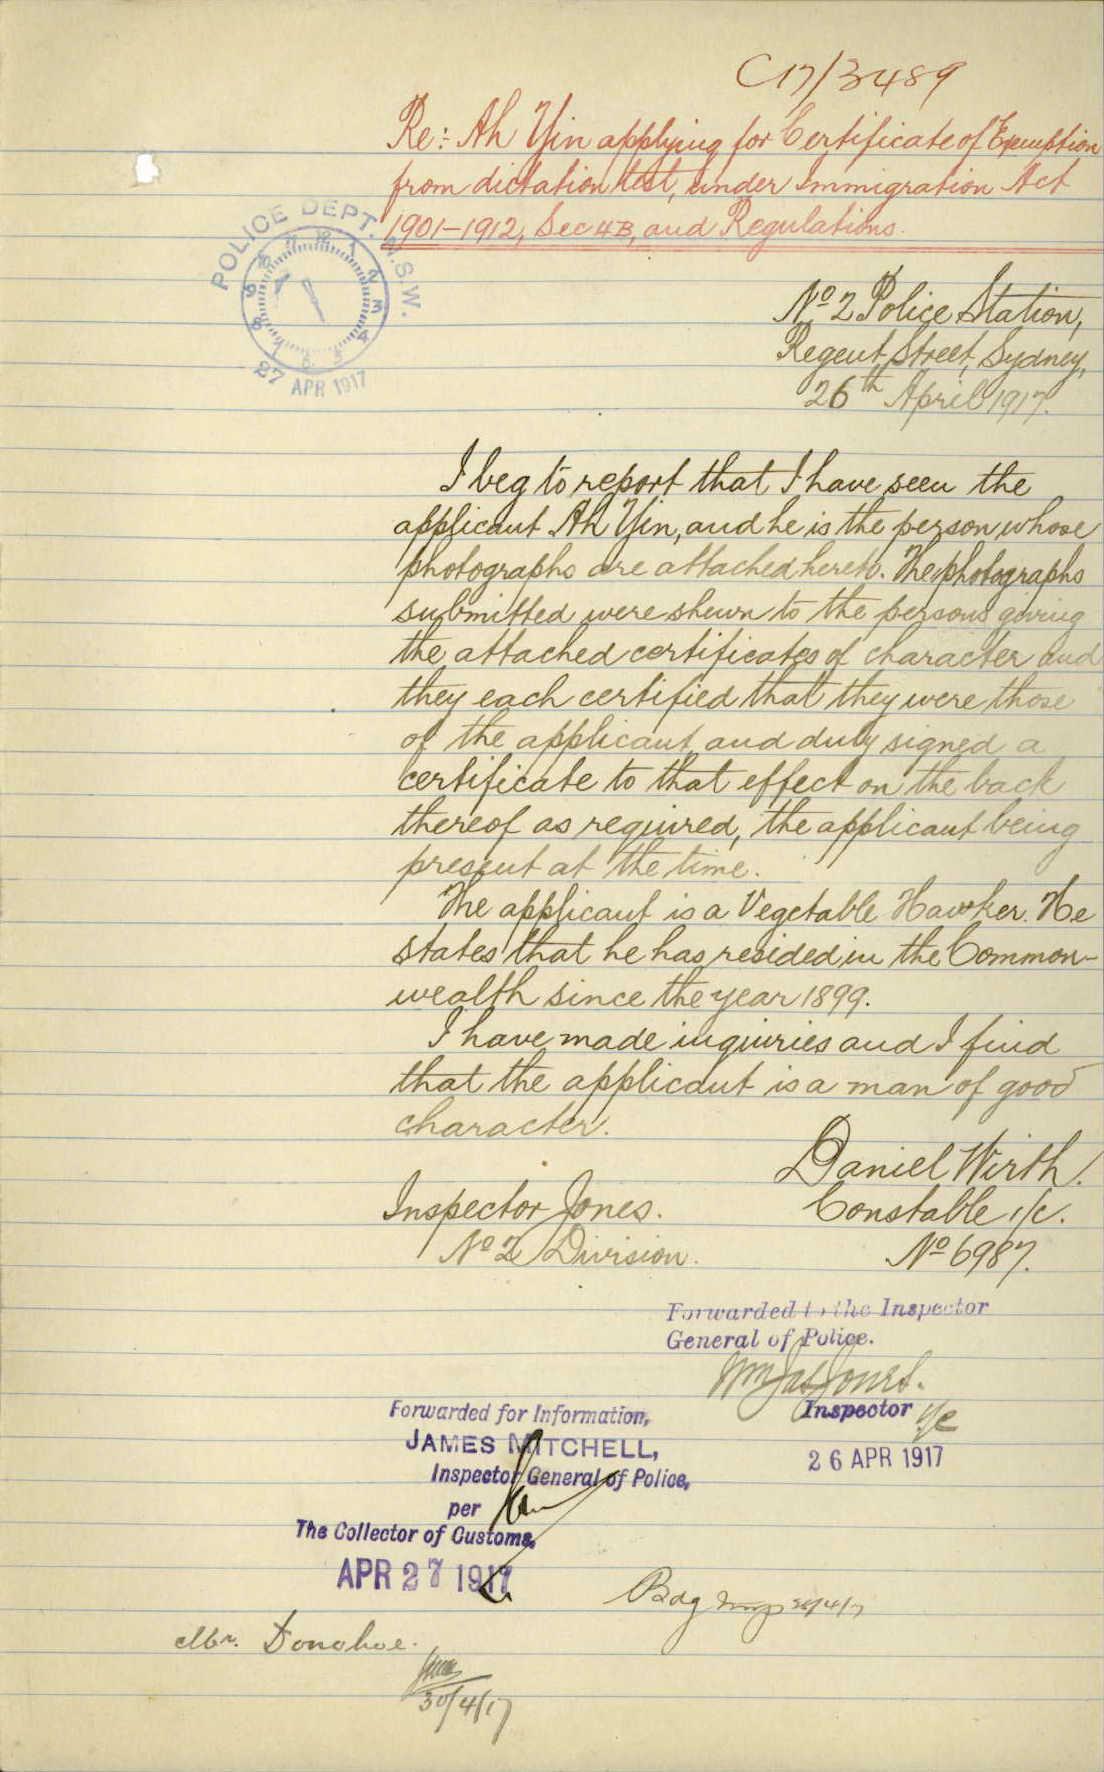 C17/3489
Re:- Ah Yin applying for Certificate of Exemption
from dictation test, under Immigration Act
1901-1912, Sec 4B, and Regulations.
POLICE DEPT. N.S.W.
27 APR 1917
No 2 Police Station,
Regent Street, Sydney,
26th April 1917.
I beg to report that I have seen the
applicant Ah Yin, and he is the person whose
photographs are attached hereto. The photographs
submitted were shewn to the persons giving
the attached certificates of character and
they each certified that they were those
of the applicant and duly signed a
certificate to that effect on the back
thereof as required, the applicant being
present at the time.
The applicant is a Vegetable Hawker. He
states that he has resided in the Common-
wealth since the year 1899.
I have made inquiries and I find
that the applicant is a man of good
character.
Daniel Wirth.
Constable 1/c.
No 6987.
Inspector Jones.
No 2 Division.
Forwarded to the Inspector
General of Police.
Wm Jas Jones.
Inspector
26 APR 1917
Forwarded for Information,
JAMES MITCHELL,
Inspector General of Police,
per
The Collector of Customs.
APR 27 1917
Bdg 28/4/17
Mr. Donohoe.
30/4/17